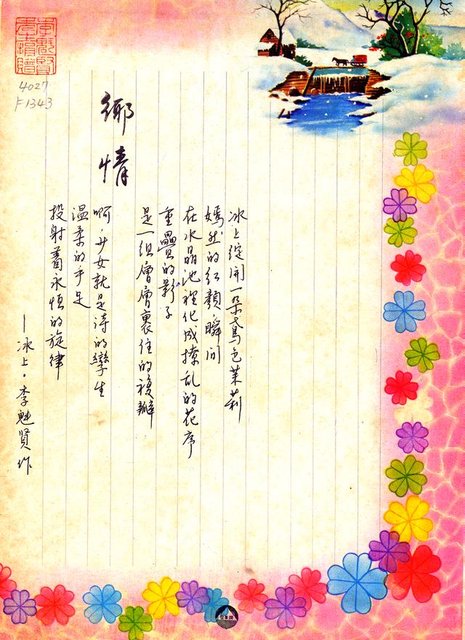 鄉情
冰上綻開一朵鳶色茉莉
嫣然的紅顏瞬間
在水晶池裡化成撩乱的花序
重疊的影子
是一組層層裹住的複瓣
啊,少女就是詩的孿生
溫柔的手足
投射著永恒的旋律
—冰上·李魁賢作
4027
F1343